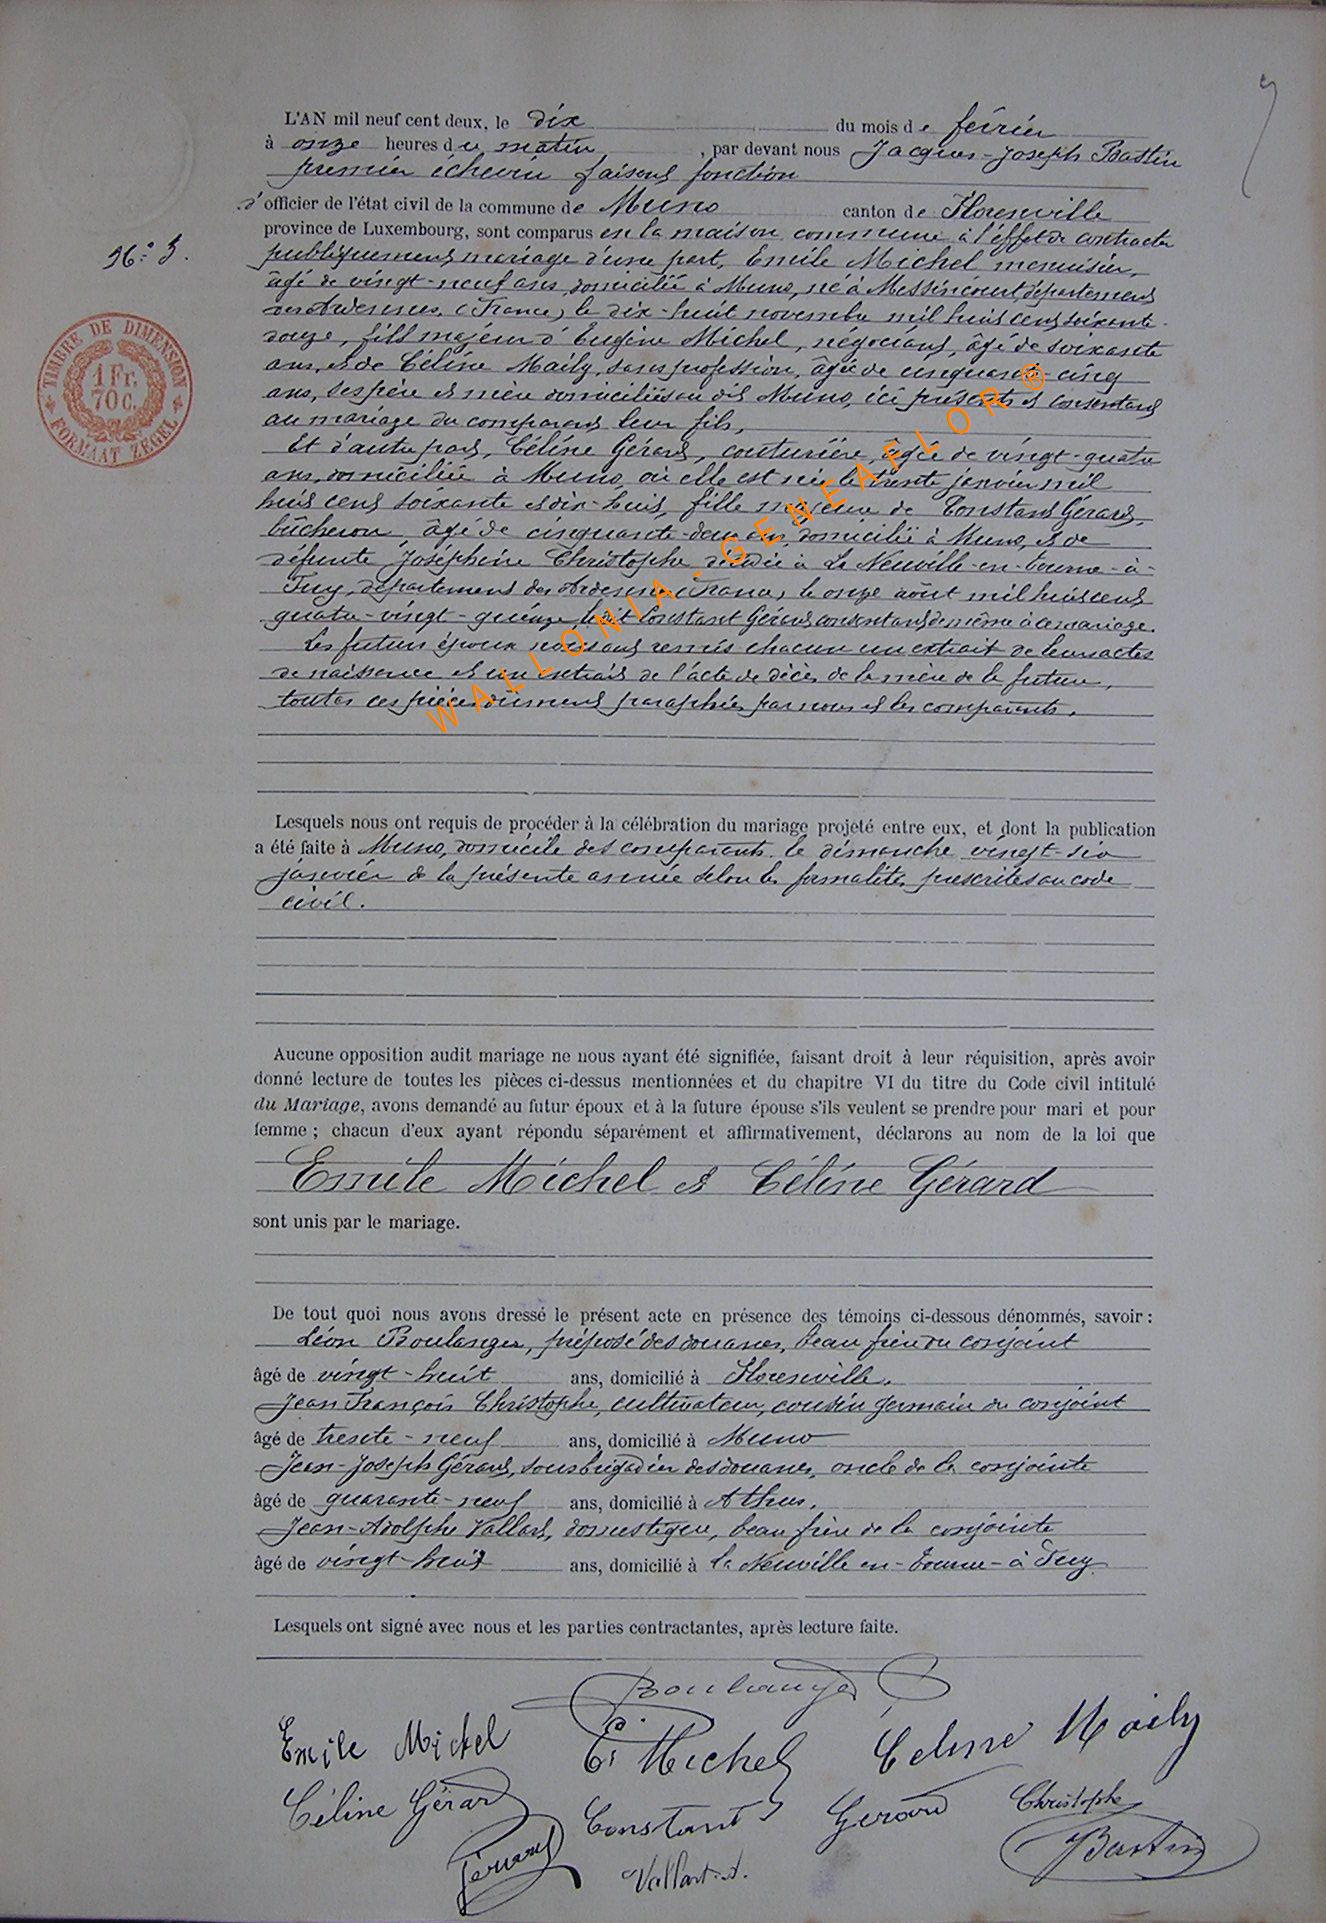 L'AN mil neuf cent deux, le dix du mois de février
à onze heures du matin, par devant nous Jacques-Joseph Bastin
premier échevin faisant fonction
d'officier de l'état civil de la commune de Muno canton de Florenville
province de Luxembourg, sont comparus en la maison commune à l'effet de contracter
N° 5.
publiquement mariage d'une part, Emile Michel menuisier,
âgé de vingt-neuf ans, domicilié à Muno, né à Messincourt, département
des Ardennes (France) le dix-huit novembre mil huit cent soixante-
douze, fils majeur d'Eugène Michel, négociant, âgé de soixante
ans, et de Céline Maily, sans profession, âgée de cinquante-cinq
ans, ses père et mère domiciliés au dit Muno, ici présents et consentant
au mariage du comparant leur fils,
Et d'autre part, Céline Gérard, couturière, âgée de vingt-quatre
ans, domiciliée à Muno, où elle est née le trente janvier mil
huit cent soixante et dix-huit, fille majeure de Constant Gérard,
bûcheron, âgé de cinquante-deux ans, domicilié à Muno, et de
défunte Joséphine Christophe, décédée à La Neuville-en-tourne-à-
Fuy, département des Ardennes (France) le onze août mil huit cent
quatre-vingt-quinze, le dit Constant Gérard consentant de même à ce mariage.
Les futurs époux nous ont remis chacun un extrait de leurs actes
de naissance et un extrait de l'acte de décès de la mère de la future,
toutes ces pièces dûment paraphées par nous et les comparants.
WALLONIA-GENEAFLOR®
TIMBRE DE DIMENSION
1 Fr.
70 C.
FORMAAT ZEGEL
Lesquels nous ont requis de procéder à la célébration du mariage projeté entre eux, et dont la publication
a été faite à Muno, domicile des comparants le dimanche vingt-six
janvier de la présente année selon les formalités prescrites au code
civil.
Aucune opposition audit mariage ne nous ayant été signifiée, faisant droit à leur réquisition, après avoir
donné lecture de toutes les pièces ci-dessus mentionnées et du chapitre VI du titre du Code civil intitulé
du Mariage, avons demandé au futur époux et à la future épouse s'ils veulent se prendre pour mari et pour
femme ; chacun d'eux ayant répondu séparément et affirmativement, déclarons au nom de la loi que
Emile Michel et Céline Gérard
sont unis par le mariage.
De tout quoi nous avons dressé le présent acte en présence des témoins ci-dessous dénommés, savoir :
Léon Boulanger, préposé des douanes, beau frère du conjoint
âgé de vingt-huit ans, domicilié à Florenville,
Jean François Christophe, cultivateur, cousin germain du conjoint
âgé de trente-neuf ans, domicilié à Muno
Jean-Joseph Gérard, sous brigadier des douanes, oncle de la conjointe
âgé de quarante-neuf ans, domicilié à Athus,
Jean-Adolphe Vallart, domestique, beau frère de la conjointe
âgé de vingt-huit ans, domicilié à la Neuville en-tourne-à Fuy
Lesquels ont signé avec nous et les parties contractantes, après lecture faite.
Boulanger
Emile Michel E. Michel Celine Maily
Céline Gérard Constant Gerard Christophe
Gérard Vallart. A. Bastin